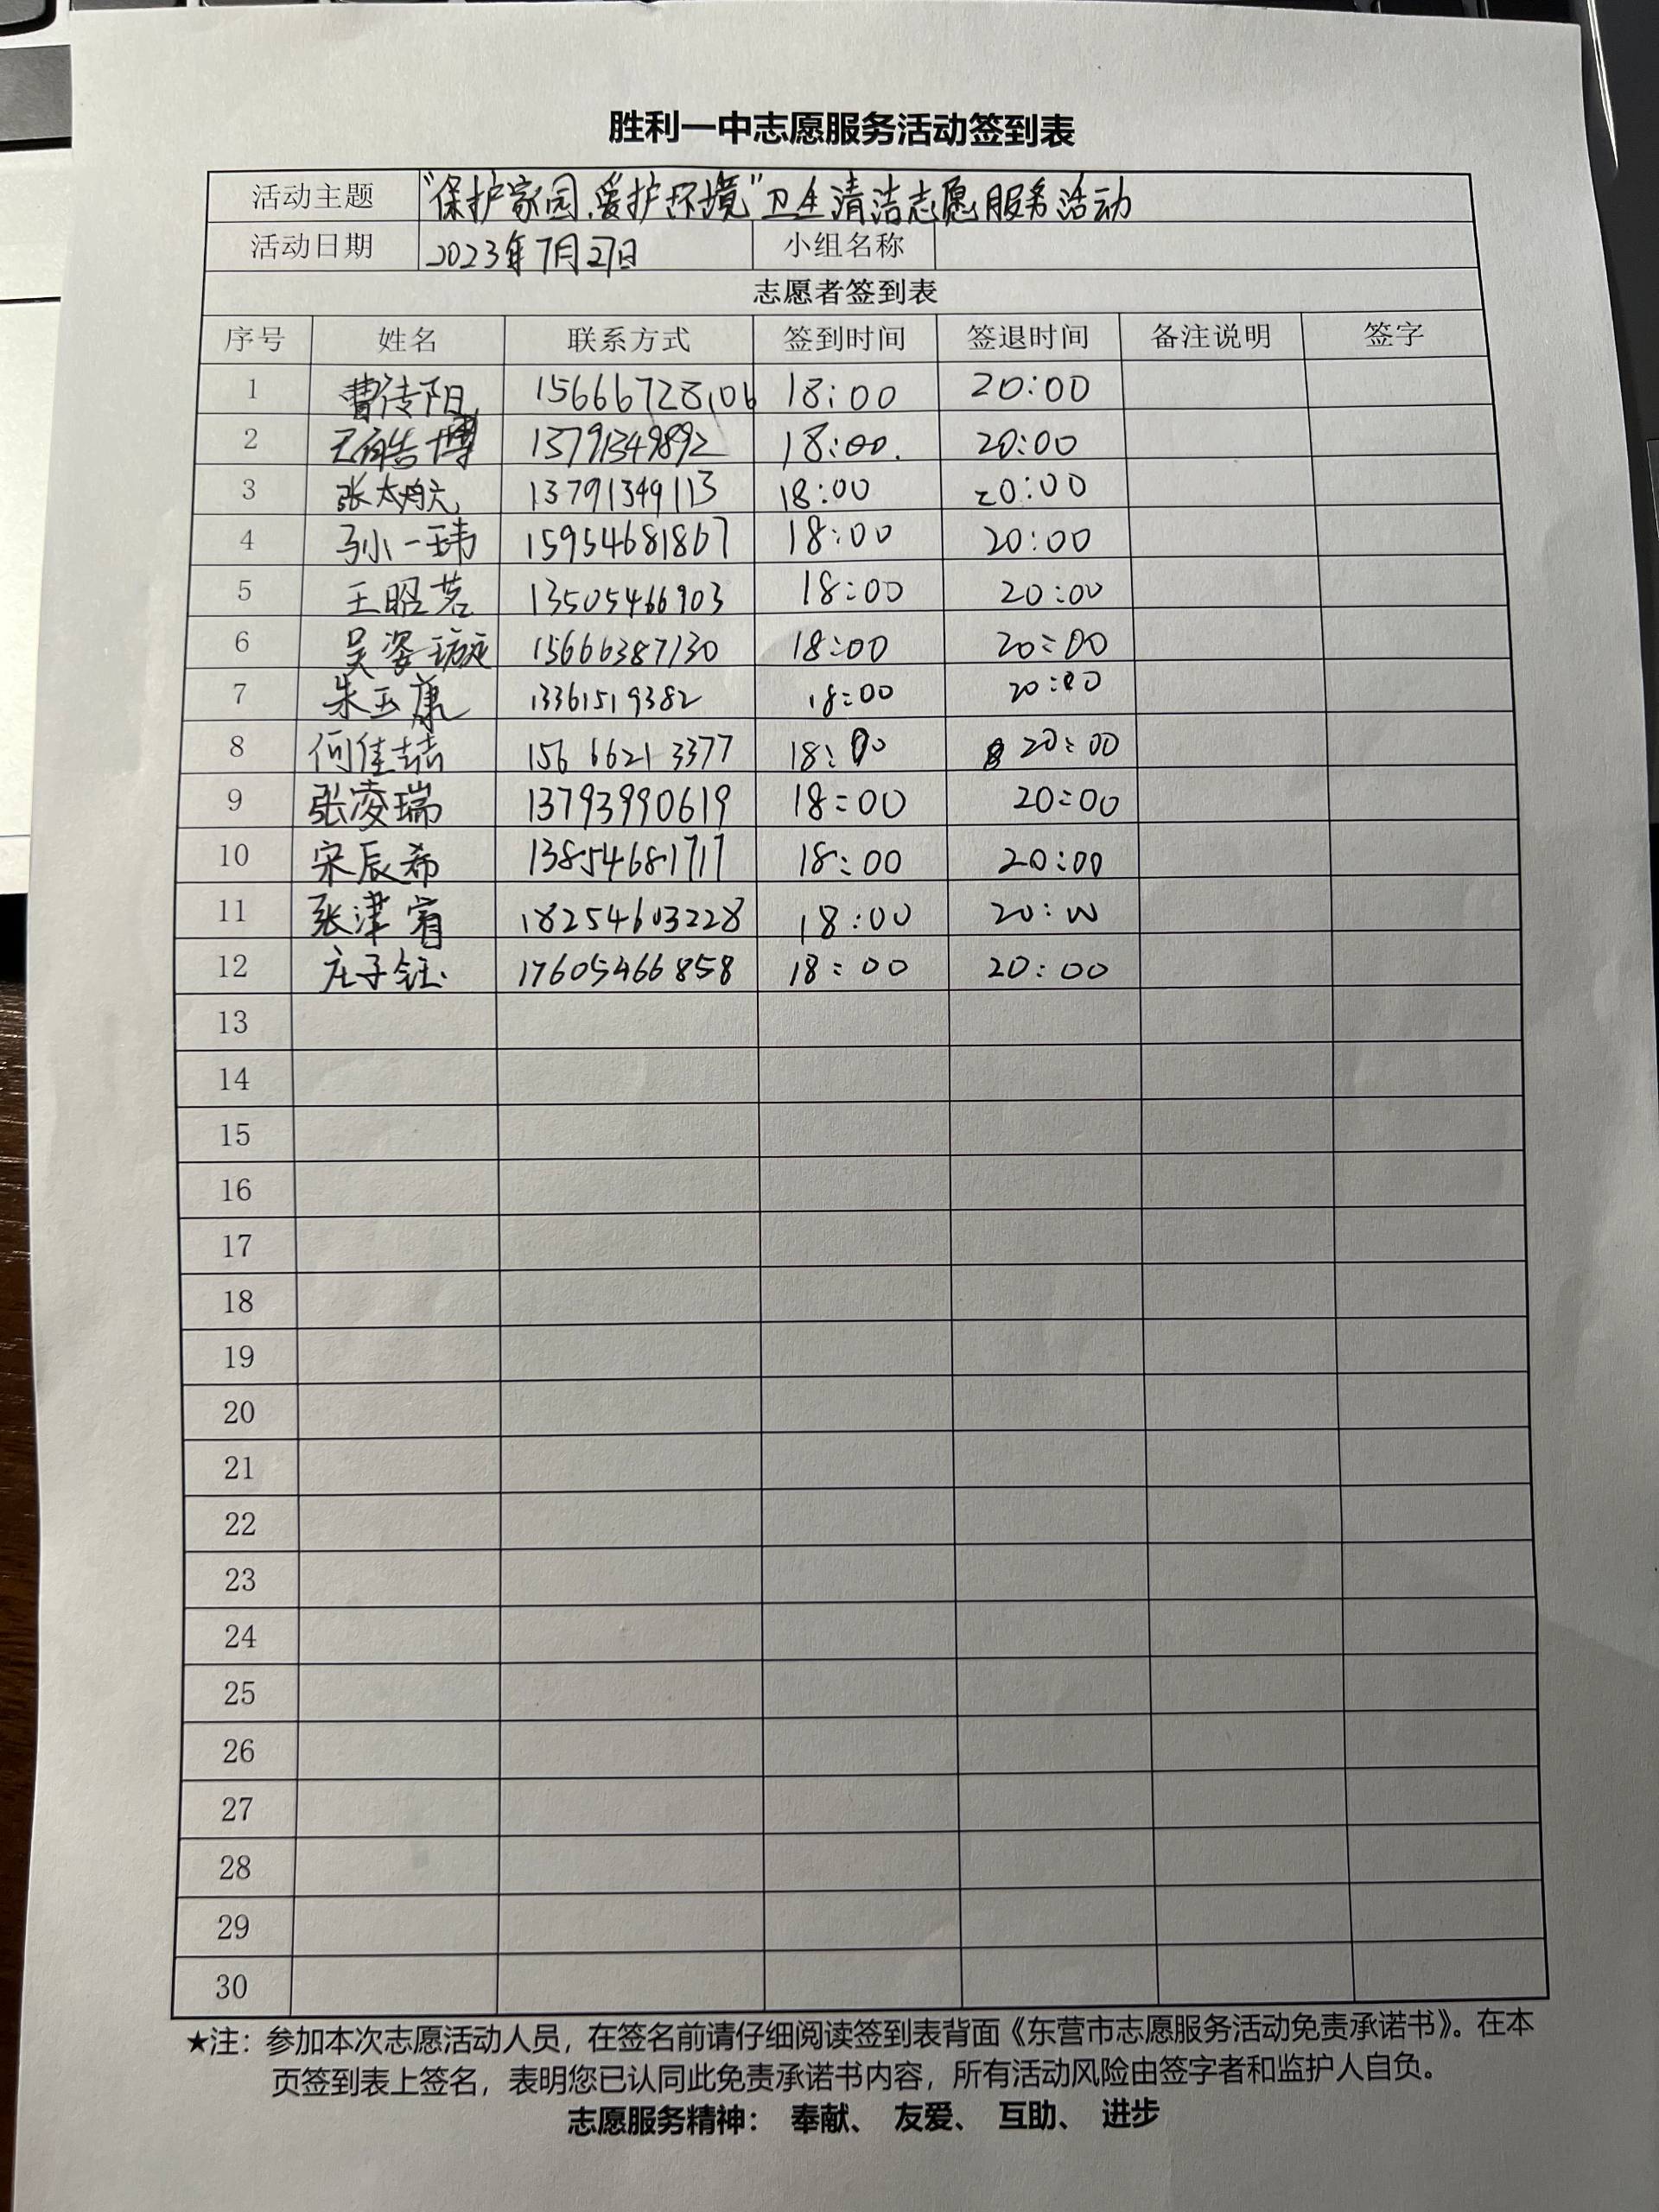 胜利一中志愿服务活动签到表
活动主题 “保护家园、爱护环境”卫生清洁志愿服务活动
活动日期 2023年7月27日 小组名称
志愿者签到表
序号 姓名 联系方式 签到时间 签退时间 备注说明 签字
1 曹传阳 15666728106 18:00 20:00
2 13791349892 18:00. 20:00
3 张太航 13791349113 18:00 20:00
4 孙一玮 15954681867 18:00 20:00
5 王昭茗 13505466903 18:00 20:00
6 吴姿璇 15666387130 18:00 20:00
7 朱玉康 13361519382 18:00 20:00
8 何佳喆 156 6621 3377 18:00 20:00
9 张凌瑞 13793990619 18:00 20:00
10 宋辰希 13854681717 18:00 20:00
11 张津宥 18254603228 18:00 20:00
12 庄子钰 17605466858 18:00 20:00
13
14
15
16
17
18
19
20
21
22
23
24
25
26
27
28
29
30
★注：参加本次志愿活动人员，在签名前请仔细阅读签到表背面《东营市志愿服务活动免责承诺书》。在本
页签到表上签名，表明您已认同此免责承诺书内容，所有活动风险由签字者和监护人自负。
志愿服务精神： 奉献、 友爱、 互助、 进步